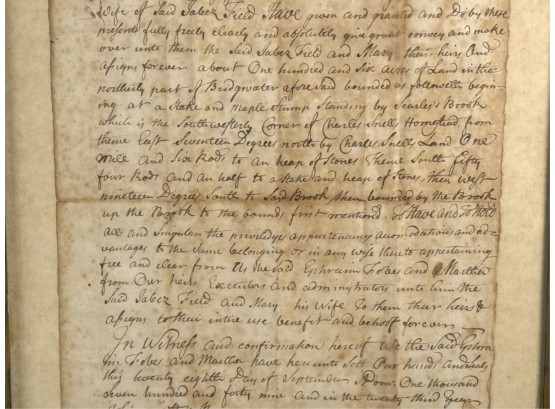 wife of Said Jabez Field Have given and granted and Do by these
presents fully freely clearly and absolutely give grant convey and make
over unto them the Said Jabez Field and Mary their heirs And
assigns forever about One Hundred and Six Acres of Land in the
northerly part of Bridgwater afore Said bounded as followeth begin-
ing at a Stake and maple Stump Standing by Searles's Brook
which is the Southwesterly Corner of Charles Snell Homestead from
thence East Seventeen Degrees north by Charles Snells Land One
mile and Six Rods to an heap of Stones Thence South fifty
four Rods and an half to a stake and heap of Stones, then west
nineteen Degrees South to Said Brook then bounded by the Brook
up the Brook to the bounds first mentioned To Have and To Hold
All and Singular the priviledges appurtenances accomodations and ad-
vantages to the Same belonging or in any wise thereto appertaining
free and clear from Us the Said Ephraim Fobes and Martha
from Our heirs Executors and administrators unto him the
Said Jabez Field and Mary his Wife To them their heirs &
assigns to their intire use benefit and behoof forever
In Witness and confirmation hereof We the Said Ephra
im Fobes and Martha have here unto Sett Our hands and Seals
this twenty eighth Day of September A Dom: One Thousand
seven hundred and forty nine and in the twenty third year